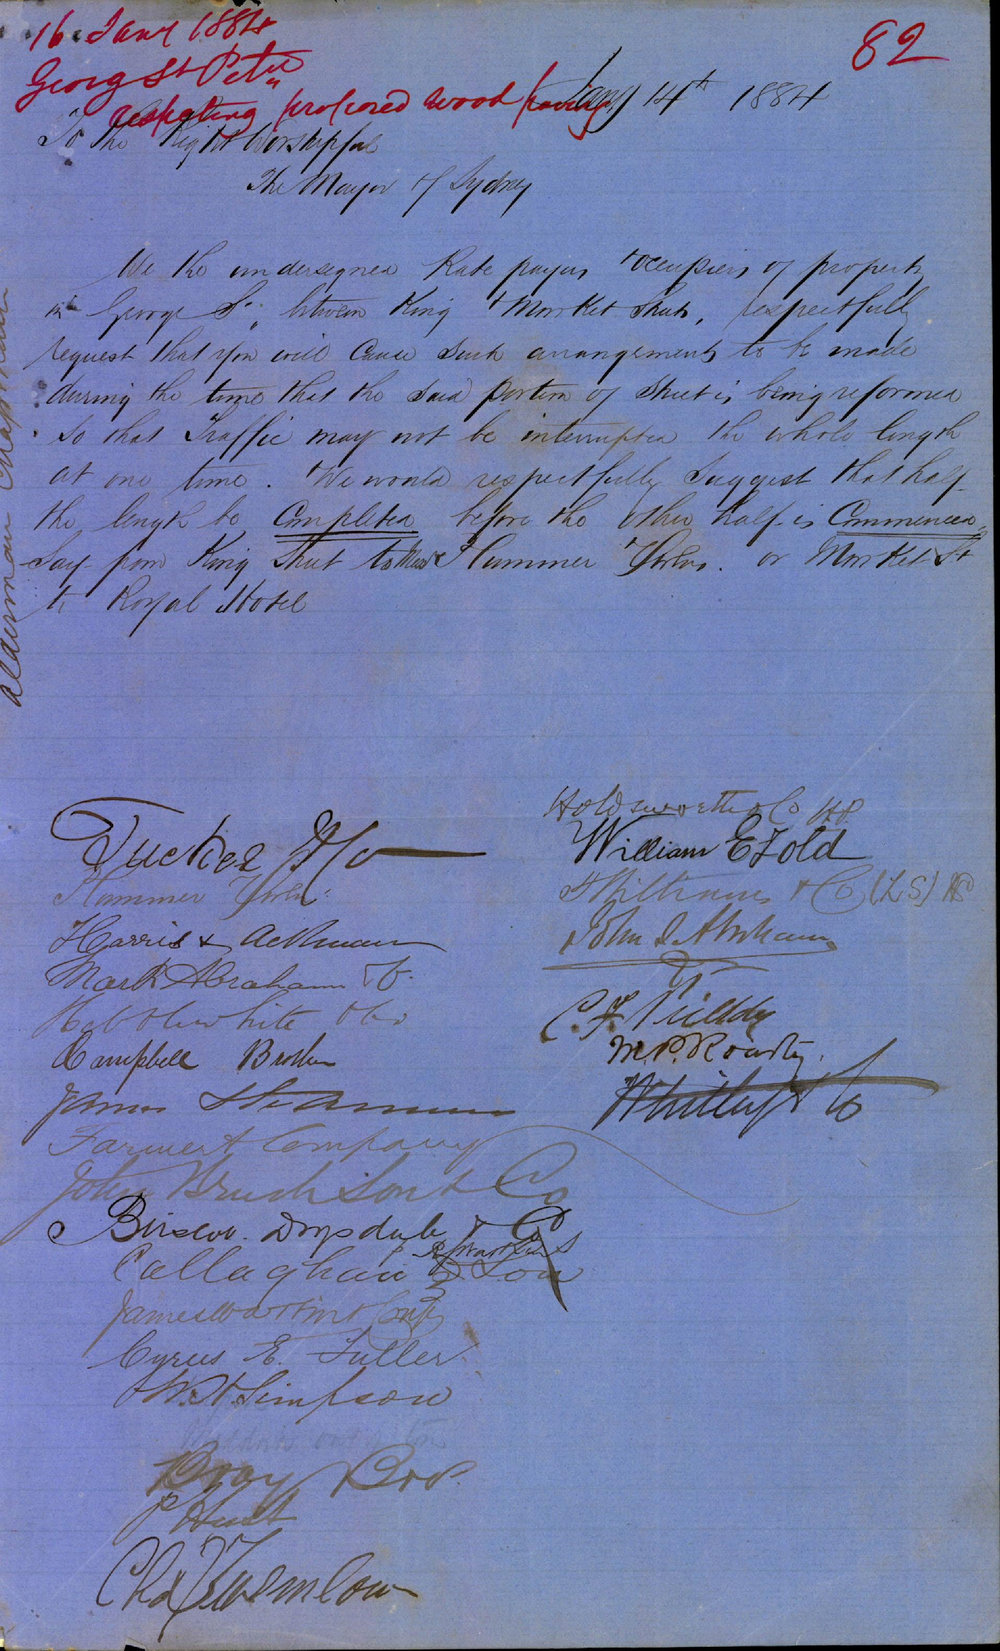 16 Jany 1884
82
Georg St Petn
respecting proposed wood paving
Jany 14th 1884
To The Right Worshipful
The Mayor of Sydney
We the undersigned Rate payers & occupiers of property
in George St, between King & Market Streets, respectfully
request that you will cause such arrangements to be made
during the time that the said portion of Street is being reformed
so that Traffic may not be interrupted the whole length
at one time. We would respectfully suggest that half
the length be Completed before the other half is Commenced,
Say from King Street to Messrs Flammer & or Market St
to Royal Hotel
Alderman Chapman
Tucker & Co
Harris & Ackman
Mark Abrahams
Hebblewhite & Co
Campbell Brothers
James
Farmer & Company
John Brush Son & Co
Briscoe Drysdale & Co
Callaghan & Son
James
Cyrus E. Fuller
W. H. Simpson
Bray Bros.
P Hurst
Chas
Holdsworth & Co
William E Told
& Co (LS)
John I. Abrahams
C. F.
M.P. Roarty.
Whitley & Co